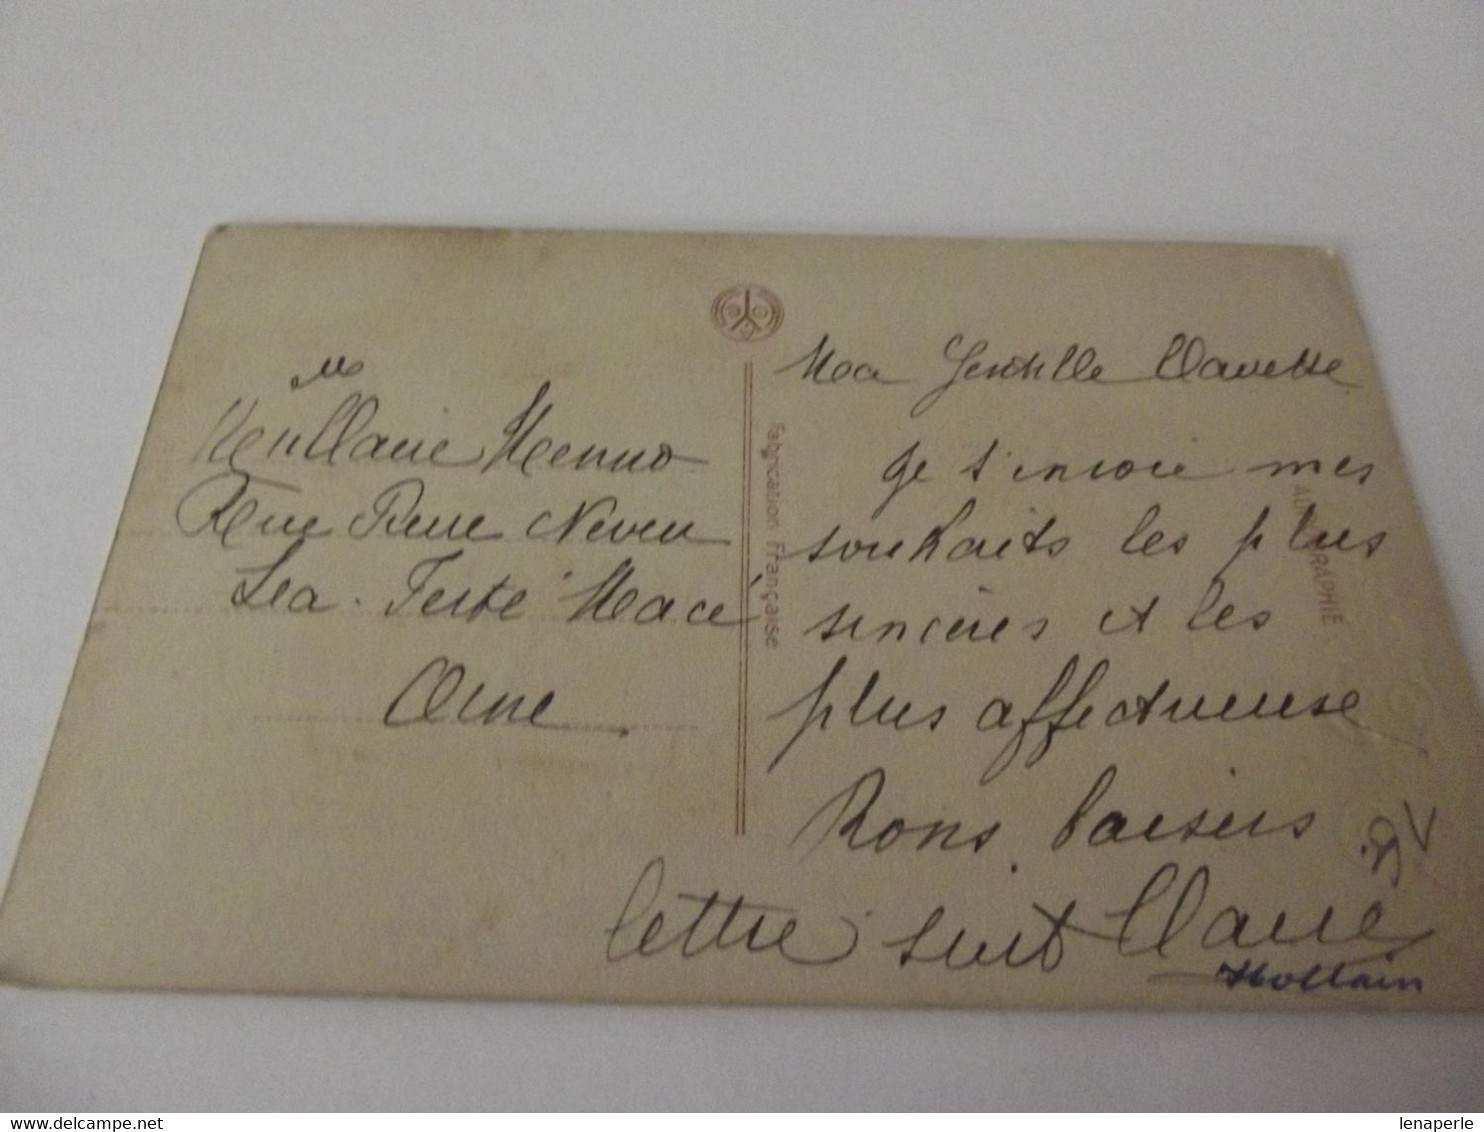 Claire
Rue Pierre Neveu
La Ferté Macé
Orne
Fabrication Française
Ma Gentille Clairette
Je t'envoie mes
souhaits les plus
sincères et les
plus affectueuse
Bons baisers
lettre suit Claire
Hottain
lenaperle